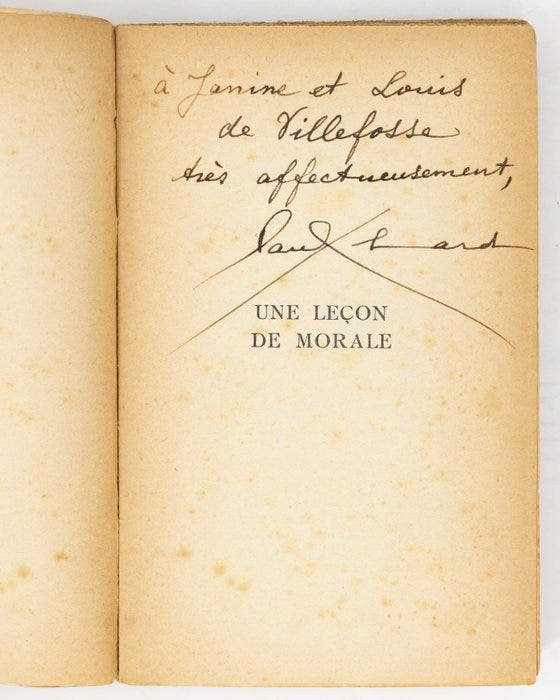 à Janine et Louis
de Villefosse
très affectueusement,
Paul Eluard
UNE LEÇON
DE MORALE